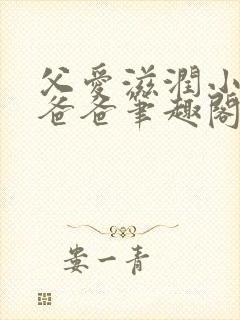 父愛滋潤小
爸爸筆趣閣
婁一青